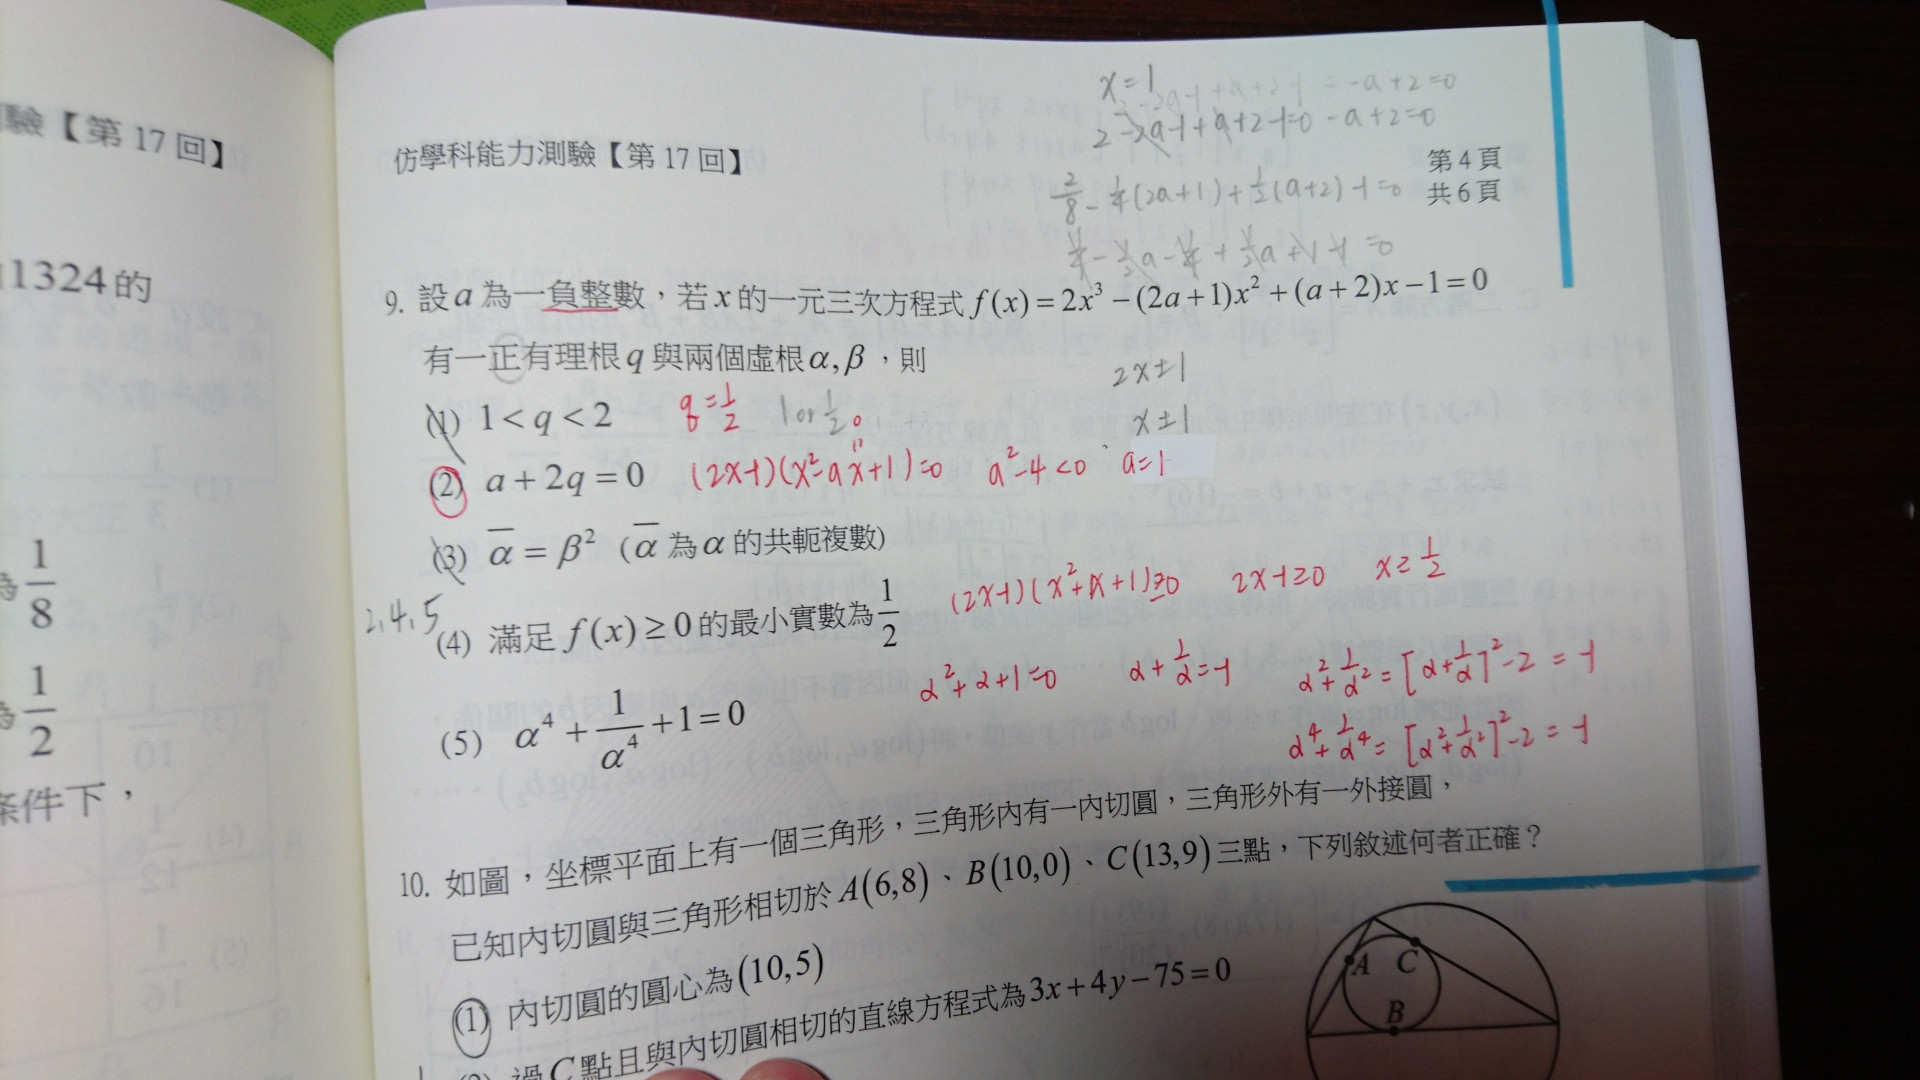 驗【第 17 回】
1324的
1/8
1/2
條件下，
x=1
2-2a-1+a+2-1=0 -a+2=0
仿學科能力測驗【第 17 回】
第4頁
共6頁
2/8-1/4(2a+1)+1/2(a+2)-1=0
1/4-1/2a-1/4+1/2a+1-1=0
9. 設a為一負整數，若x的一元三次方程式f(x)=2x³-(2a+1)x²+(a+2)x-1=0
有一正有理根q與兩個虛根α,β，則
2x±1
(1) 1<q<2 q=1/2 1 or 1/2
x±1
(2) a+2q=0 (2x-1)(x²-ax+1)=0 a²-4<0 a=-1
(3) ᾱ=β² (ᾱ為α的共軛複數)
2,4,5
(4) 滿足f(x)≥0的最小實數為1/2 (2x-1)(x²+x+1)≥0 2x-1≥0 x≥1/2
(5) α⁴+1/α⁴+1=0 α²+α+1=0 α+1/α=-1 α²+1/α²=[α+1/α]²-2=-1
α⁴+1/α⁴=[α²+1/α²]²-2=-1
10. 如圖，坐標平面上有一個三角形，三角形內有一內切圓，三角形外有一外接圓，
已知內切圓與三角形相切於A(6,8)、B(10,0)、C(13,9)三點，下列敘述何者正確？
(1) 內切圓的圓心為(10,5)
(2) 過C點且與內切圓相切的直線方程式為3x+4y-75=0
A C
B